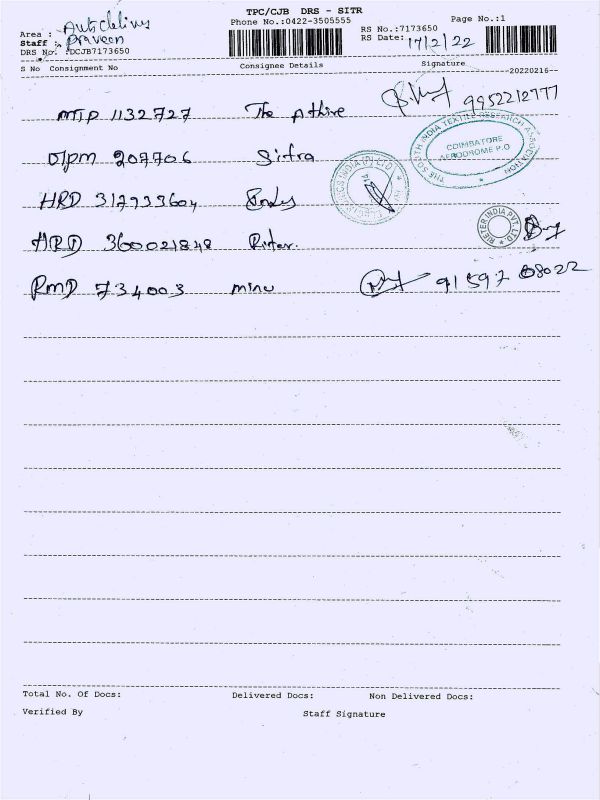 TPC/CJB DRS - SITR
Phone No.:0422-3505555
Page No.:1
RS No.:7173650
RS Date: 17/2/22
Area :
Staff : Praveen
DRS No. :DCJB7173650
S No Consignment No Consignee Details Signature
20220216
MTP 1132727 The Athire 9952212777
207706 Sitra
THE SOUTH INDIA TEXTILE RESEARCH ASSOCIATION
COIMBATORE
AERODROME P.O
HRD 317933604
HRD 360021848 Rieter.
RIETER INDIA PVT. LTD
RMD 734003 minu 91597 08022
Total No. Of Docs: Delivered Docs: Non Delivered Docs:
Verified By Staff Signature